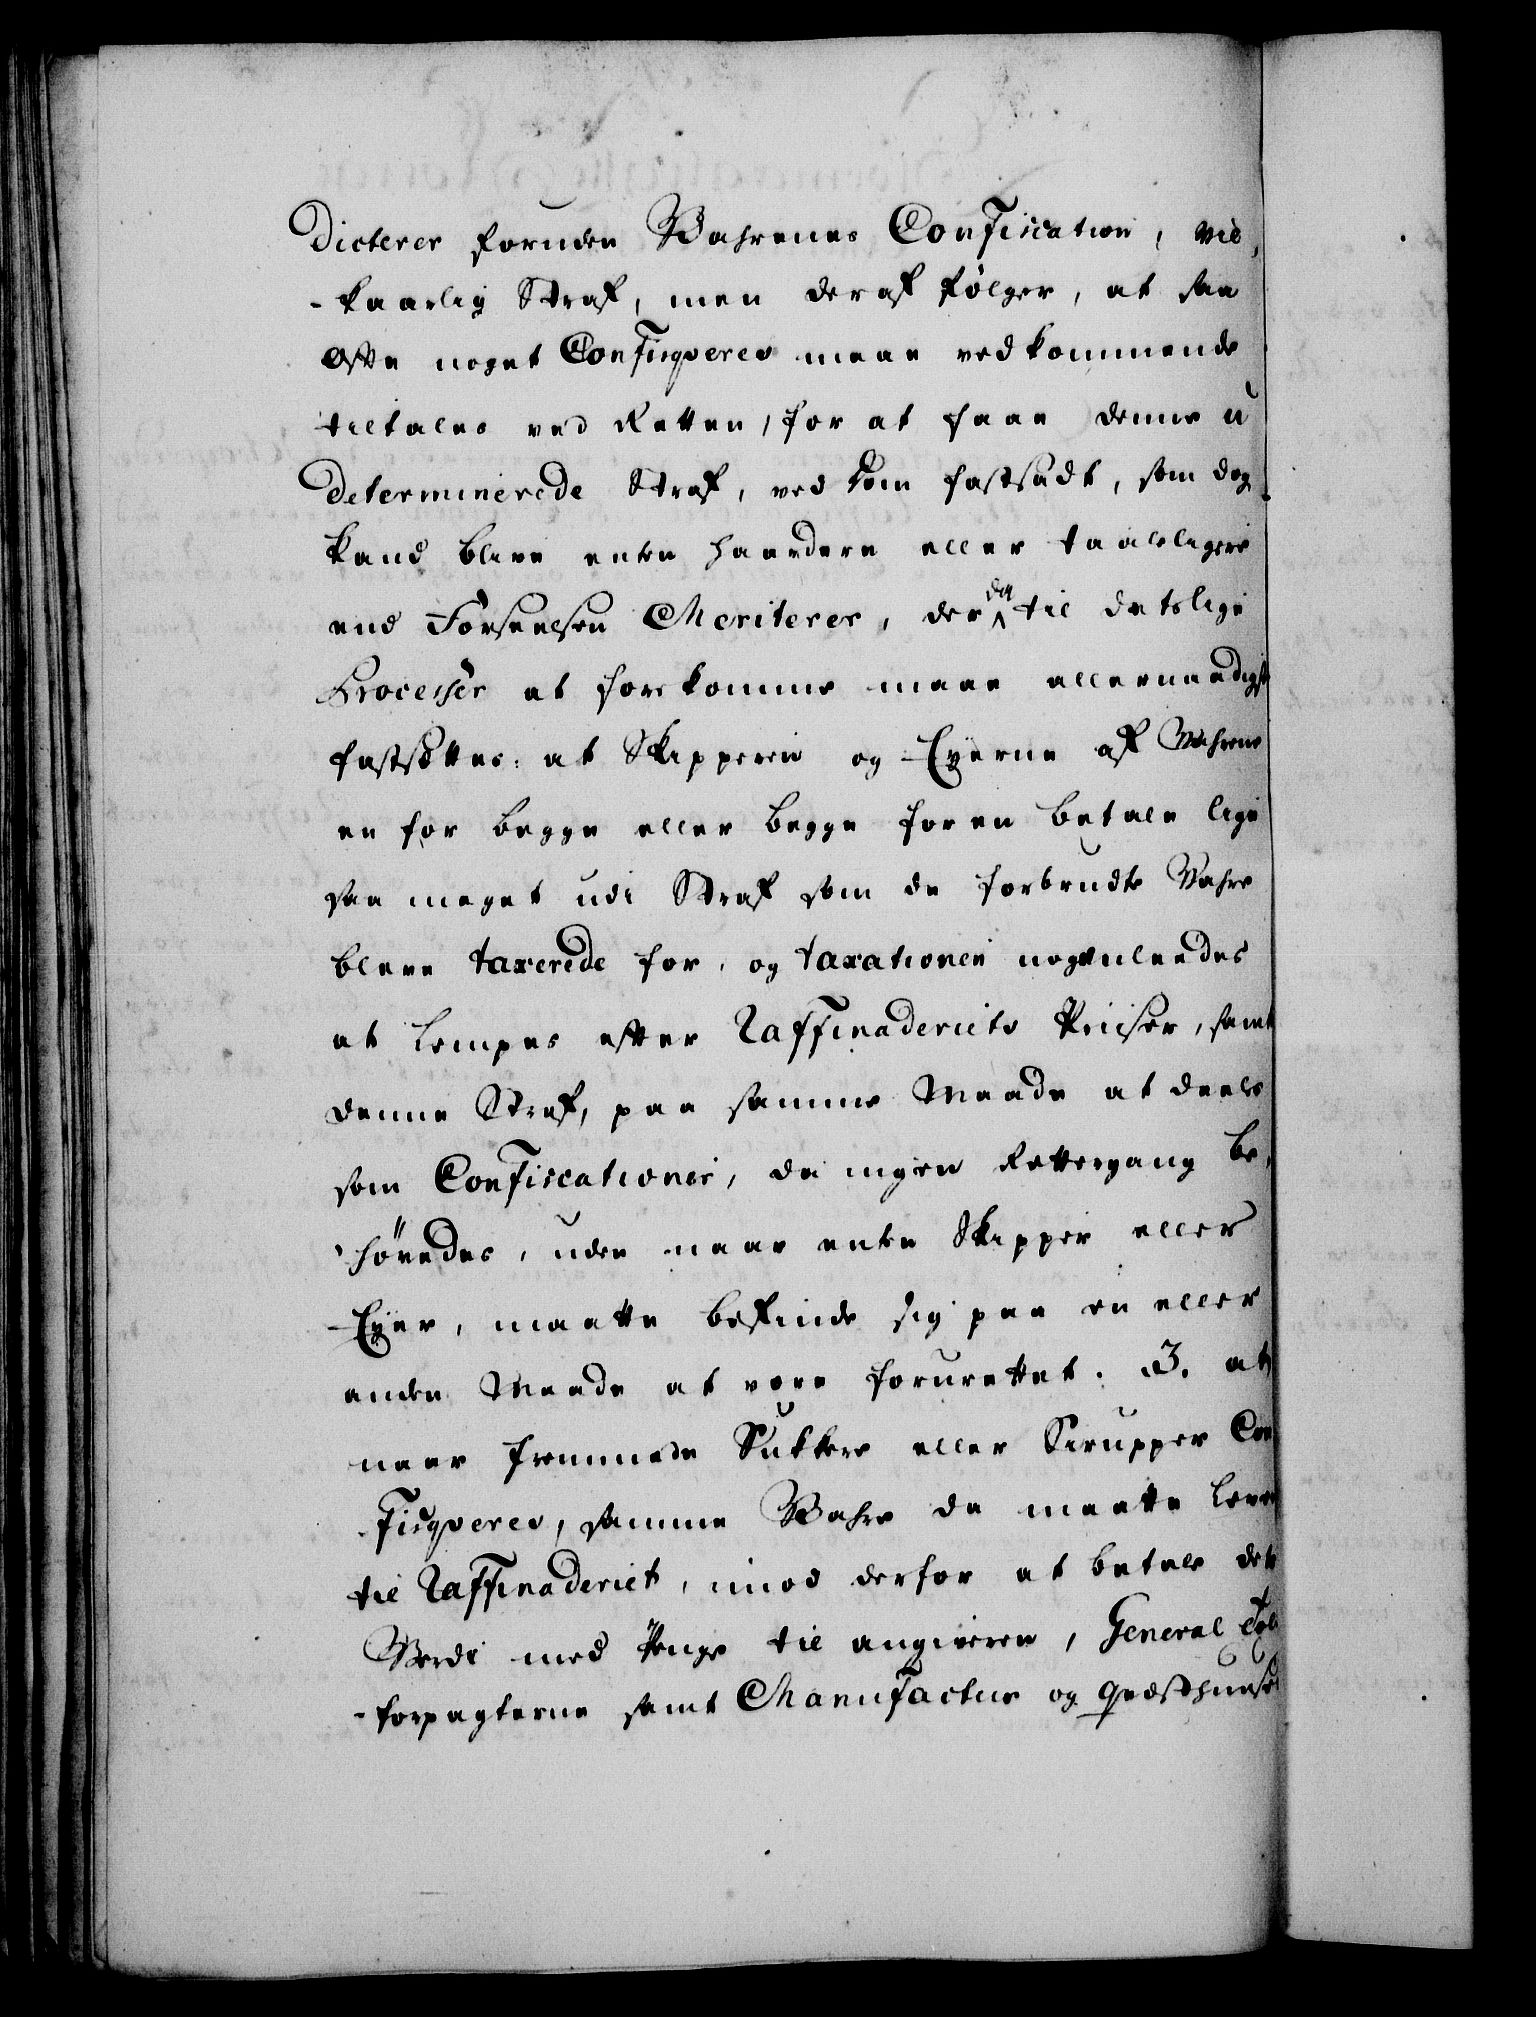 Dicterer foruden Wahrenes Confiscation, vil,
-kaarlig Straf, men deraf følger, at saa
ofte noget Confisqveres maae vedkommende
tiltales ved Retten, for at faae denne u
determinerede Straf, ved Dom fastsadt, som dog
kand blive enten haardere eller taaleligere
end Forseelsen Meriterer, der da til detslige
Processer at forekomme maae allernaadigst
fastsættes: at Skipperen og Eyerne af Wahrene
en for begge eller begge for en betale lige
saa meget udi Straf som de forbrudte Vahre
bleve taxerede for, og taxationen nogenleedes
at lempes efter Raffinaderiets Priiser, samt
denne Straf, paa samme Maade at deeles
som Confiscationer, da ingen Rettergang be,
høvedes, uden naar enten Skipper eller
Eyer, maatte befinde sig paa en eller
anden Maade at være forurettet. 3. at
naar fremmede Sukkere eller Sirupper Con
fisqveres, samme Wahre da maatte lever
til Raffinaderiet, imod derfor at betale det
Werdi med Penge til angiveren, General Told
-forpagterne samt Manufactur og Qvæsthuuset